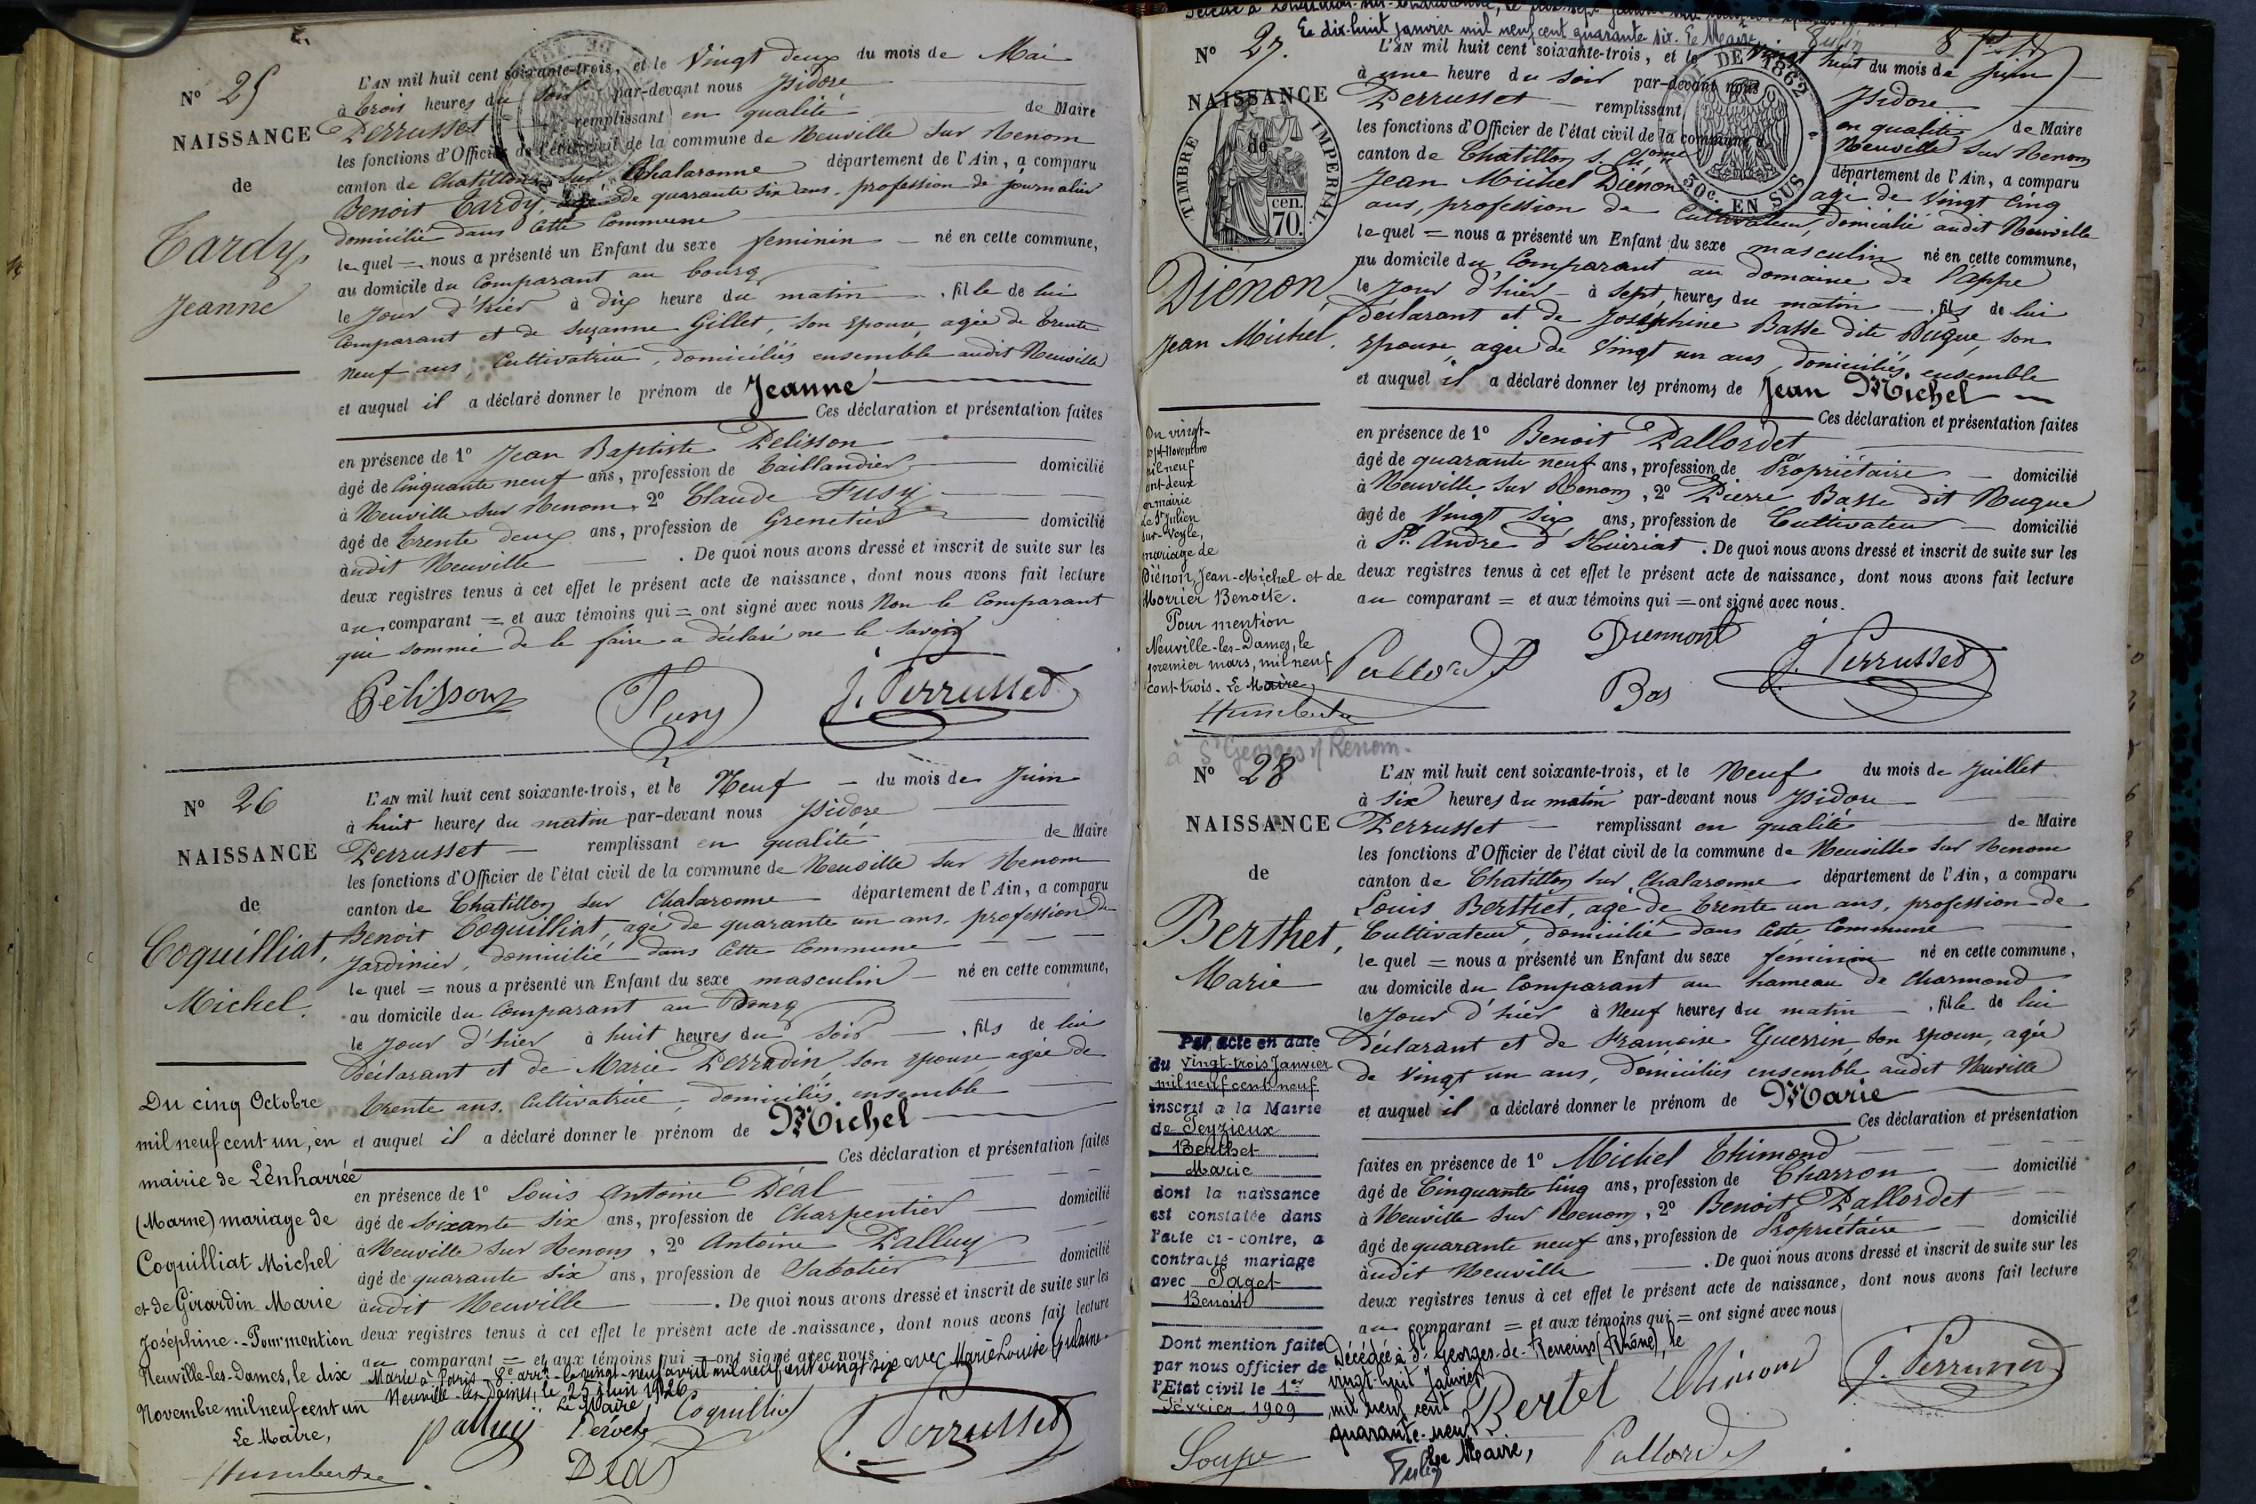 N° 25
NAISSANCE
de
Tardy,
Jeanne
L'AN mil huit cent soixante-trois, et le Vingt deux du mois de Mai
à trois heures du soir par-devant nous Isidore
Perrusset remplissant en qualité de Maire
les fonctions d'Officier de l'état civil de la commune de Neuville sur Renom
canton de Chatillon sur Chalaronne département de l'Ain, a comparu
Benoit Tardy, agé de quarante six ans, profession de journalier
domicilié dans cette Commune
le quel = nous a présenté un Enfant du sexe feminin né en cette commune,
au domicile du Comparant au bourg
le jour d'hier à dix heure du matin, fille de lui
Comparant et de Suzanne Gillet, son épouse, agée de trente
neuf ans Cultivatrice, domiciliés ensemble audit Neuville
et auquel il a déclaré donner le prénom de Jeanne
Ces déclaration et présentation faites
en présence de 1° Jean Baptiste Pelisson
âgé de Cinquante neuf ans, profession de Taillandier domicilié
à Neuville sur Renom, 2° Claude Fusy
âgé de trente deux ans, profession de Grenetier domicilié
audit Neuville. De quoi nous avons dressé et inscrit de suite sur les
deux registres tenus à cet effet le présent acte de naissance, dont nous avons fait lecture
au comparant = et aux témoins qui = ont signé avec nous Non le Comparant
qui sommé de le faire a déclaré ne le savoir
Pélisson Fusy J. Perrusset
N° 26
NAISSANCE
de
Coquilliat,
Michel.
L'AN mil huit cent soixante-trois, et le Neuf du mois de Juin
à huit heures du matin par-devant nous Isidore
Perrusset remplissant en qualité de Maire
les fonctions d'Officier de l'état civil de la commune de Neuville sur Renom
canton de Chatillon sur Chalaronne département de l'Ain, a comparu
Benoit Coquilliat, agé de quarante un ans, profession de
Jardinier, domicilié dans cette Commune
le quel = nous a présenté un Enfant du sexe masculin né en cette commune,
au domicile du Comparant au Bourg
le jour d'hier à huit heures du soir, fils de lui
Déclarant et de Marie Perradin, son épouse, agée de
trente ans, Cultivatrice, domiciliés ensemble
et auquel il a déclaré donner le prénom de Michel
Ces déclaration et présentation faites
en présence de 1° Louis Antoine Déal
âgé de soixante six ans, profession de Charpentier domicilié
à Neuville sur Renom, 2° Antoine Palluy
âgé de quarante six ans, profession de Sabotier domicilié
audit Neuville. De quoi nous avons dressé et inscrit de suite sur les
deux registres tenus à cet effet le présent acte de naissance, dont nous avons fait lecture
au comparant = et aux témoins qui = ont signé avec nous
Marié à Paris 8e arrt le vingt-neuf avril mil neuf cent vingt six avec Marie Louise
Neuville-les-Dames, le 25 Juin 1926
Le Maire,
Palluy Coquilliat
Déal J. Perrusset
Du cinq Octobre
mil neuf cent un, en
mairie de Lenharrée
(Marne) mariage de
Coquilliat Michel
et de Girardin Marie
Joséphine.- Pour mention
Neuville-les-Dames, le dix
Novembre mil neuf cent un
Le Maire,
Humbertre
Le dix-huit janvier mil neuf cent quarante six. Le Maire,
N° 27.
NAISSANCE
de
TIMBRE IMPERIAL
cen. 70.
1862
50c. EN SUS
Diénon,
Jean Michel.
L'AN mil huit cent soixante-trois, et le Vingt huit du mois de Juin
à une heure du soir par-devant nous Isidore
Perrusset remplissant en qualité de Maire
les fonctions d'Officier de l'état civil de la commune de Neuville sur Renom
canton de Chatillon s. Chonne département de l'Ain, a comparu
Jean Michel Diénon agé de Vingt Cinq
ans, profession de Cultivateur, domicilié audit Neuville
le quel = nous a présenté un Enfant du sexe masculin né en cette commune,
au domicile du Comparant au domaine de l'Appe
le jour d'hier à sept heures du matin, fils de lui
Déclarant et de Joséphine Basse dite Nugue, son
épouse, agée de Vingt un ans, domiciliés ensemble
et auquel il a déclaré donner les prénoms de Jean Michel
Ces déclaration et présentation faites
en présence de 1° Benoit Pallordet
âgé de quarante neuf ans, profession de Propriétaire domicilié
à Neuville sur Renom, 2° Pierre Basse dit Nugue
âgé de Vingt six ans, profession de Cultivateur domicilié
à St. André d'Huiriat. De quoi nous avons dressé et inscrit de suite sur les
deux registres tenus à cet effet le présent acte de naissance, dont nous avons fait lecture
au comparant = et aux témoins qui = ont signé avec nous.
Pallordet Diennont Bas J. Perrusset
Du vingt-
sept Novembre
mil neuf
cent-deux
en mairie
de St Julien
sur-Veyle,
mariage de
Diénon, Jean-Michel et de
Morrier Benoite.
Pour mention
Neuville-les-Dames, le
premier mars, mil neuf
cent-trois. Le Maire,
Humbertre
à St Georges s/ Renom.
N° 28
NAISSANCE
de
Berthet,
Marie
L'AN mil huit cent soixante-trois, et le Neuf du mois de Juillet
à six heures du matin par-devant nous Isidore
Perrusset remplissant en qualité de Maire
les fonctions d'Officier de l'état civil de la commune de Neuville sur Renom
canton de Chatillon sur Chalaronne département de l'Ain, a comparu
Louis Berthet, agé de trente un ans, profession de
Cultivateur, domicilié dans cette Commune
le quel = nous a présenté un Enfant du sexe féminin né en cette commune,
au domicile du Comparant au hameau de Charmond
le jour d'hier à Neuf heures du matin, fille de lui
Déclarant et de Francoise Guerrin, son épouse, agée
de Vingt un ans, domiciliés ensemble audit Neuville
et auquel il a déclaré donner le prénom de Marie
Ces déclaration et présentation
faites en présence de 1° Michel Thimond
âgé de Cinquante Cinq ans, profession de Charron domicilié
à Neuville sur Renom, 2° Benoit Pallordet
âgé de quarante neuf ans, profession de Propriétaire domicilié
audit Neuville. De quoi nous avons dressé et inscrit de suite sur les
deux registres tenus à cet effet le présent acte de naissance, dont nous avons fait lecture
au comparant = et aux témoins qui = ont signé avec nous
Bertet Thimond J. Perrusset
Pallordet
Par acte en date
du vingt-trois Janvier
mil neuf cent neuf
inscrit à la Mairie
de Peyzieux
Berthet
Marie
dont la naissance
est constatée dans
l'acte ci-contre, a
contracté mariage
avec Paget
Benoit
Dont mention faite
par nous officier de
l'Etat civil le 1er
Février 1909
Soupe
Décédée à St. Georges-de-Reneins (Rhône), le
vingt-huit Janvier
mil neuf cent
quarante-neuf
Le Maire,